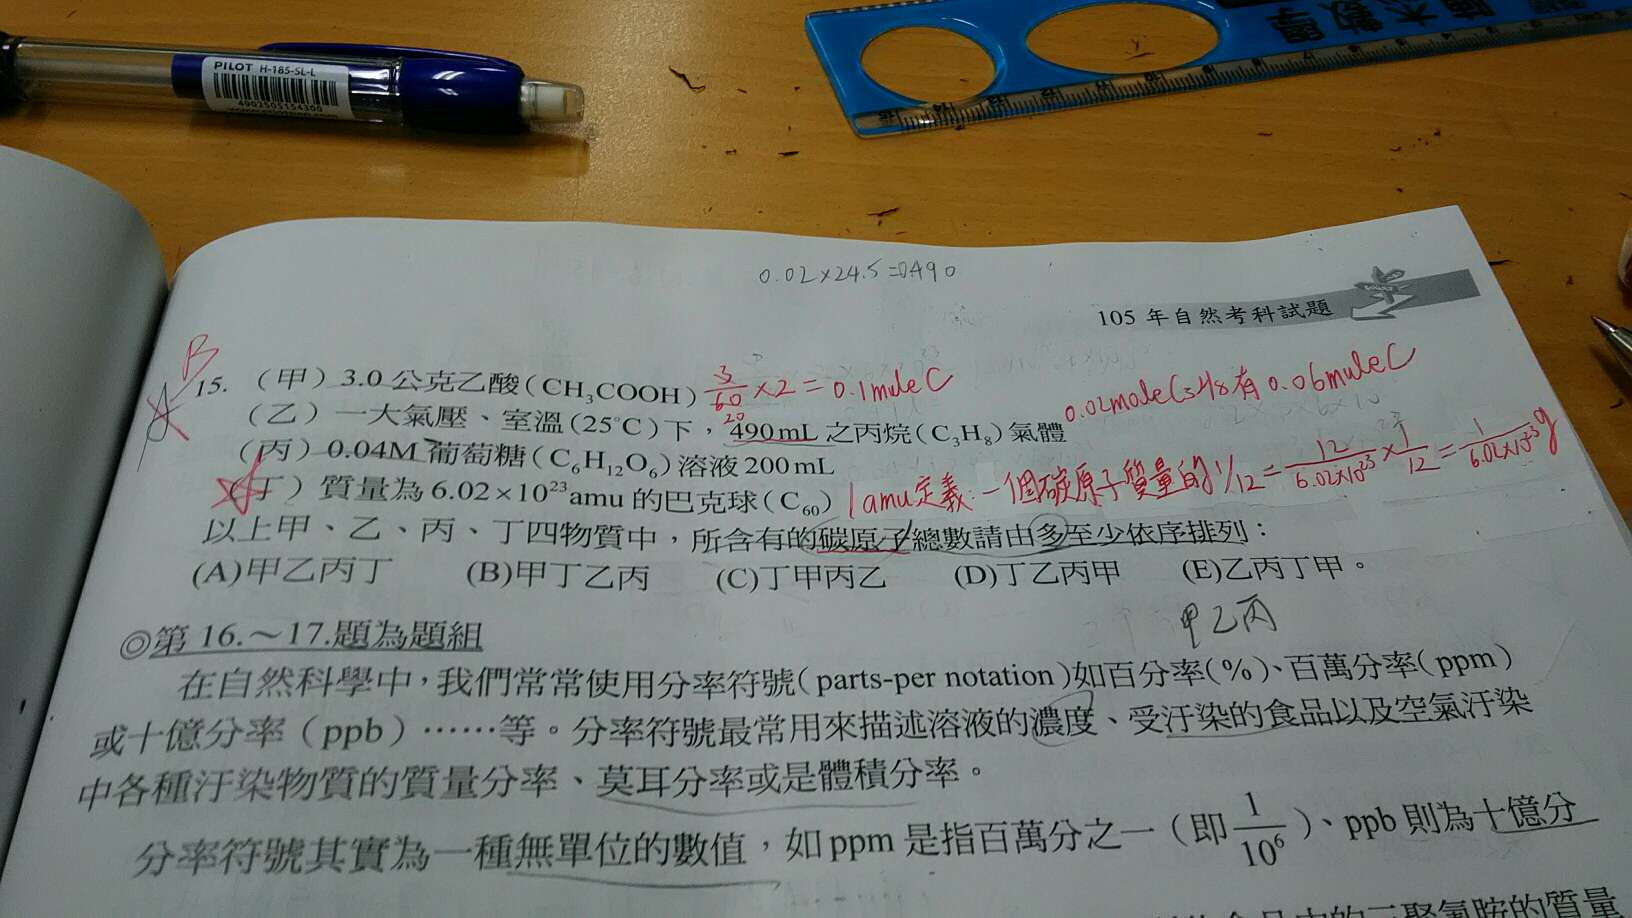 PILOT H-185-SL-L
4902505154300
數學
0.02×24.5=0.490
105 年自然考科試題
B
A
15. (甲) 3.0 公克乙酸(CH₃COOH) 3/60 ×2 = 0.1 mole C
20
(乙) 一大氣壓、室溫(25℃)下，490 mL 之丙烷(C₃H₈)氣體 0.02mole C₃H₈有 0.06mole C
(丙) 0.04M 葡萄糖(C₆H₁₂O₆)溶液 200 mL
(丁) 質量為 6.02×10²³amu 的巴克球(C₆₀) 1amu定義:一個碳原子質量的1/12 = 12/6.02×10²³ × 1/12 = 1/6.02×10²³ g
以上甲、乙、丙、丁四物質中，所含有的碳原子總數請由多至少依序排列：
(A)甲乙丙丁 (B)甲丁乙丙 (C)丁甲丙乙 (D)丁乙丙甲 (E)乙丙丁甲。
甲乙丙
◎第 16.～17.題為題組
在自然科學中，我們常常使用分率符號(parts-per notation)如百分率(%)、百萬分率(ppm)
或十億分率(ppb)……等。分率符號最常用來描述溶液的濃度、受汙染的食品以及空氣汙染
中各種汙染物質的質量分率、莫耳分率或是體積分率。
分率符號其實為一種無單位的數值，如 ppm 是指百萬分之一(即 1/10⁶)、ppb 則為十億分
食品中的三聚氰胺的質量